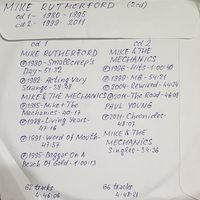 MIKE RUTHERFORD (2cd)
cd 1 - 1980 - 1995
cd 2 - 1996 - 2011
cd 1
MIKE RUTHERFORD
℗1980-Smallcreep's
Day - 51:22
℗1982-Acting Very
Strange - 38:48
MIKE & THE MECHANICS
℗1985-Mike + The
Mechanics - 40:17
℗1988-Living Years-
47:16
℗1991-Word of Mouth-
47:37
℗1995-Beggar On A
Beach Of Gold - 1:00:13
62 tracks
4:46:06
cd 2
MIKE & THE
MECHANICS
℗1996-Hits - 1:00:40
℗1999-M6 - 54:21
℗2004-Rewired - 44:24
℗2011-The Road - 46:01
PAUL YOUNG
℗2011-Chronicles-
48:02
MIKE & THE
MECHANICS
Singles - 34:36
66 tracks
4:48:21